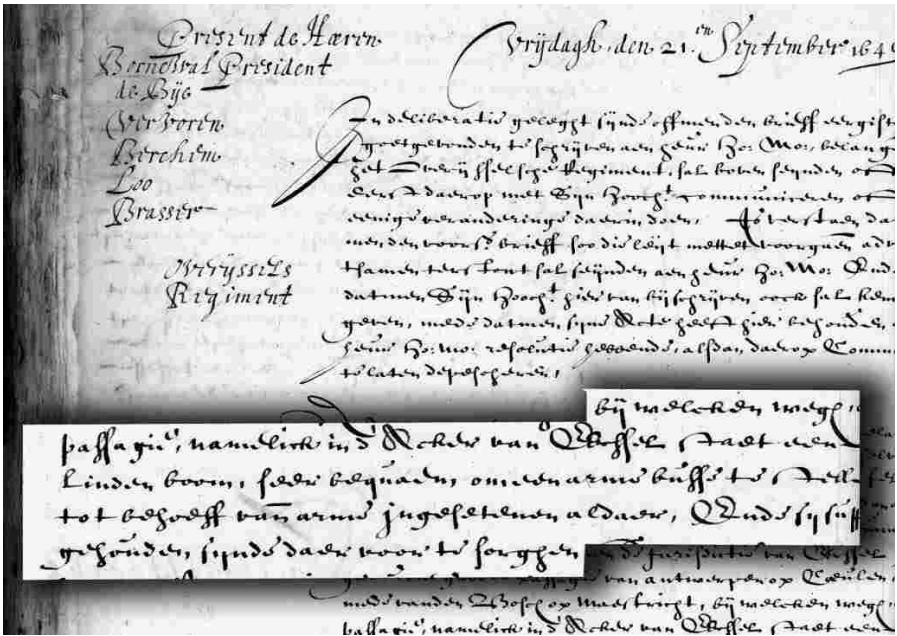 Present de Hæren
Bornewal President
de Bije
Ververen
Berchem
Loo
Brasser
Overijssels
Regiment
Vrijdagh, den 21.en September 164
In deliberatie geleght sijnde off men den brieff eergist
goetgevonden te schrijven aen heur Ho: Mo: belang
het Overijsselsche Regiment, sal boven seynden oft
eerst daerop met Sijn Hooch.t communiceren oft
eenige veranderinge daerin doen, Is verstaen da
men den voors. brieff soo die leijt mettet voorgaen adv
sal seijnden aen heur Ho: Mo: Ende
datmen Sijn Hooch.t hier van bij schrijven oock sal ken
geven, mede datmen sijne Acte heeft hier behouden,
heur Ho: Mo: resolutie hebbende, alsdan daerop Comm
te laten depescheren,
bij welcken wegh,
passagie, namelick in d' Acker van Gessel staet een
Linden boom, seer bequaem om een arme busse te stelle
tot behoeff van arme ingesetenen aldaer, Ende sij sus
gehouden sijnde daer voor te sorghen
en de Jurisdictie van Gessel
passagie van antwerpen op Cœulen
mede vanden Bosch op Maestricht, bij welcken wegh
passagie, namelick in d' Acker van Gessel staet een